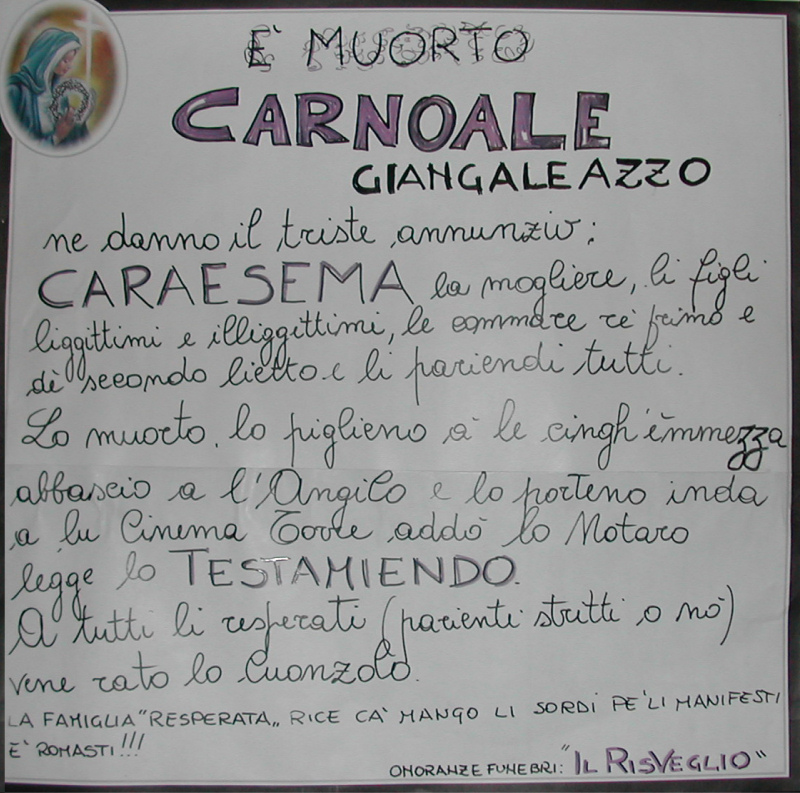 E' MUORTO
CARNOALE
GIANGALEAZZO
ne danno il triste annunzio:
CARAESEMA la mogliere, li figli
liggittimi e illiggittimi, le commare re' primo e
de' secondo lietto e li pariendi tutti.
Lo muorto, lo piglieno a' le cingh'e'mmezza
abbascio a l'Angilo e lo porteno inda
a lu Cinema Torre addo' lo Notaro
legge lo TESTAMIENDO.
A tutti li resperati (parienti stritti o no')
vene rato lo Cuonzolo.
LA FAMIGLIA "RESPERATA" RICE CA' MANGO LI SORDI PE' LI MANIFESTI
E' ROMASTI!!!
ONORANZE FUNEBRI: "IL RISVEGLIO"